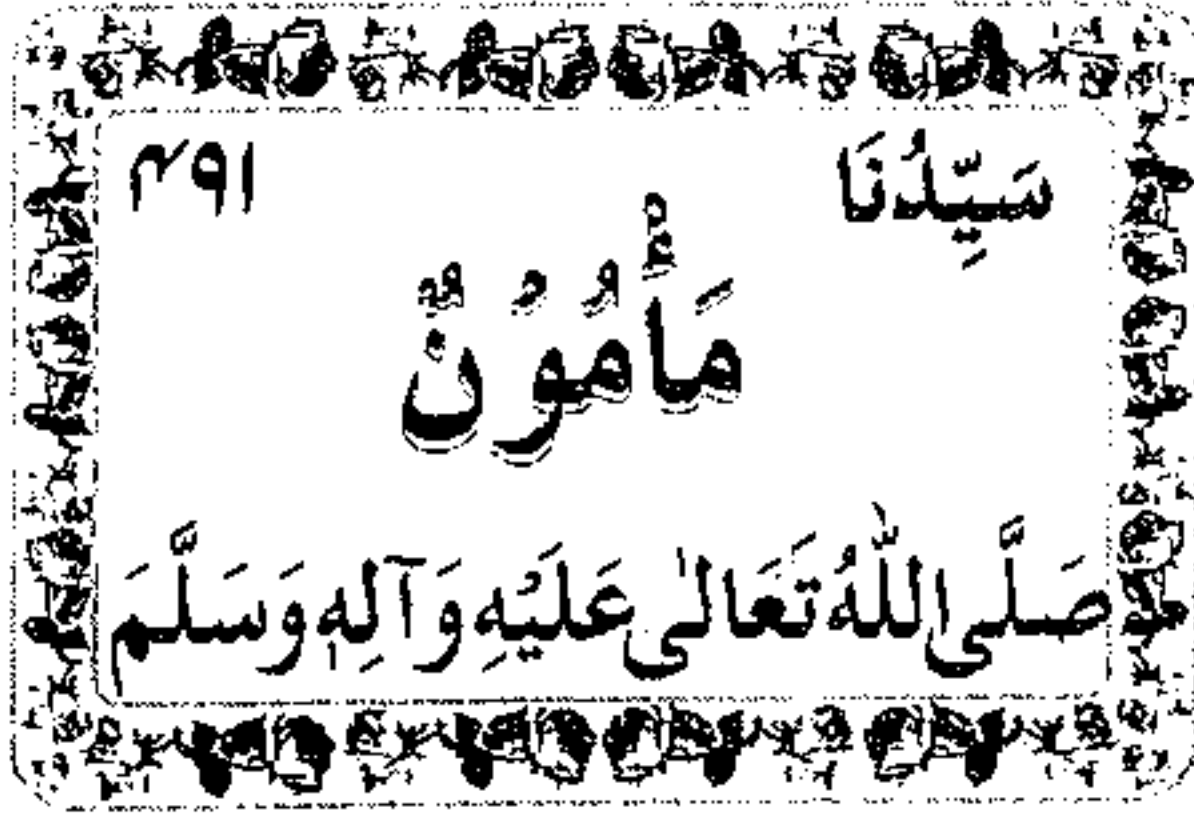 سَيِّدُنَا ۴۹۱
مَأْمُوُنٌ
صَلَّى اللّٰهُ تَعَالٰی عَلَيْهِ وَآلِهٖ وَسَلَّمَ